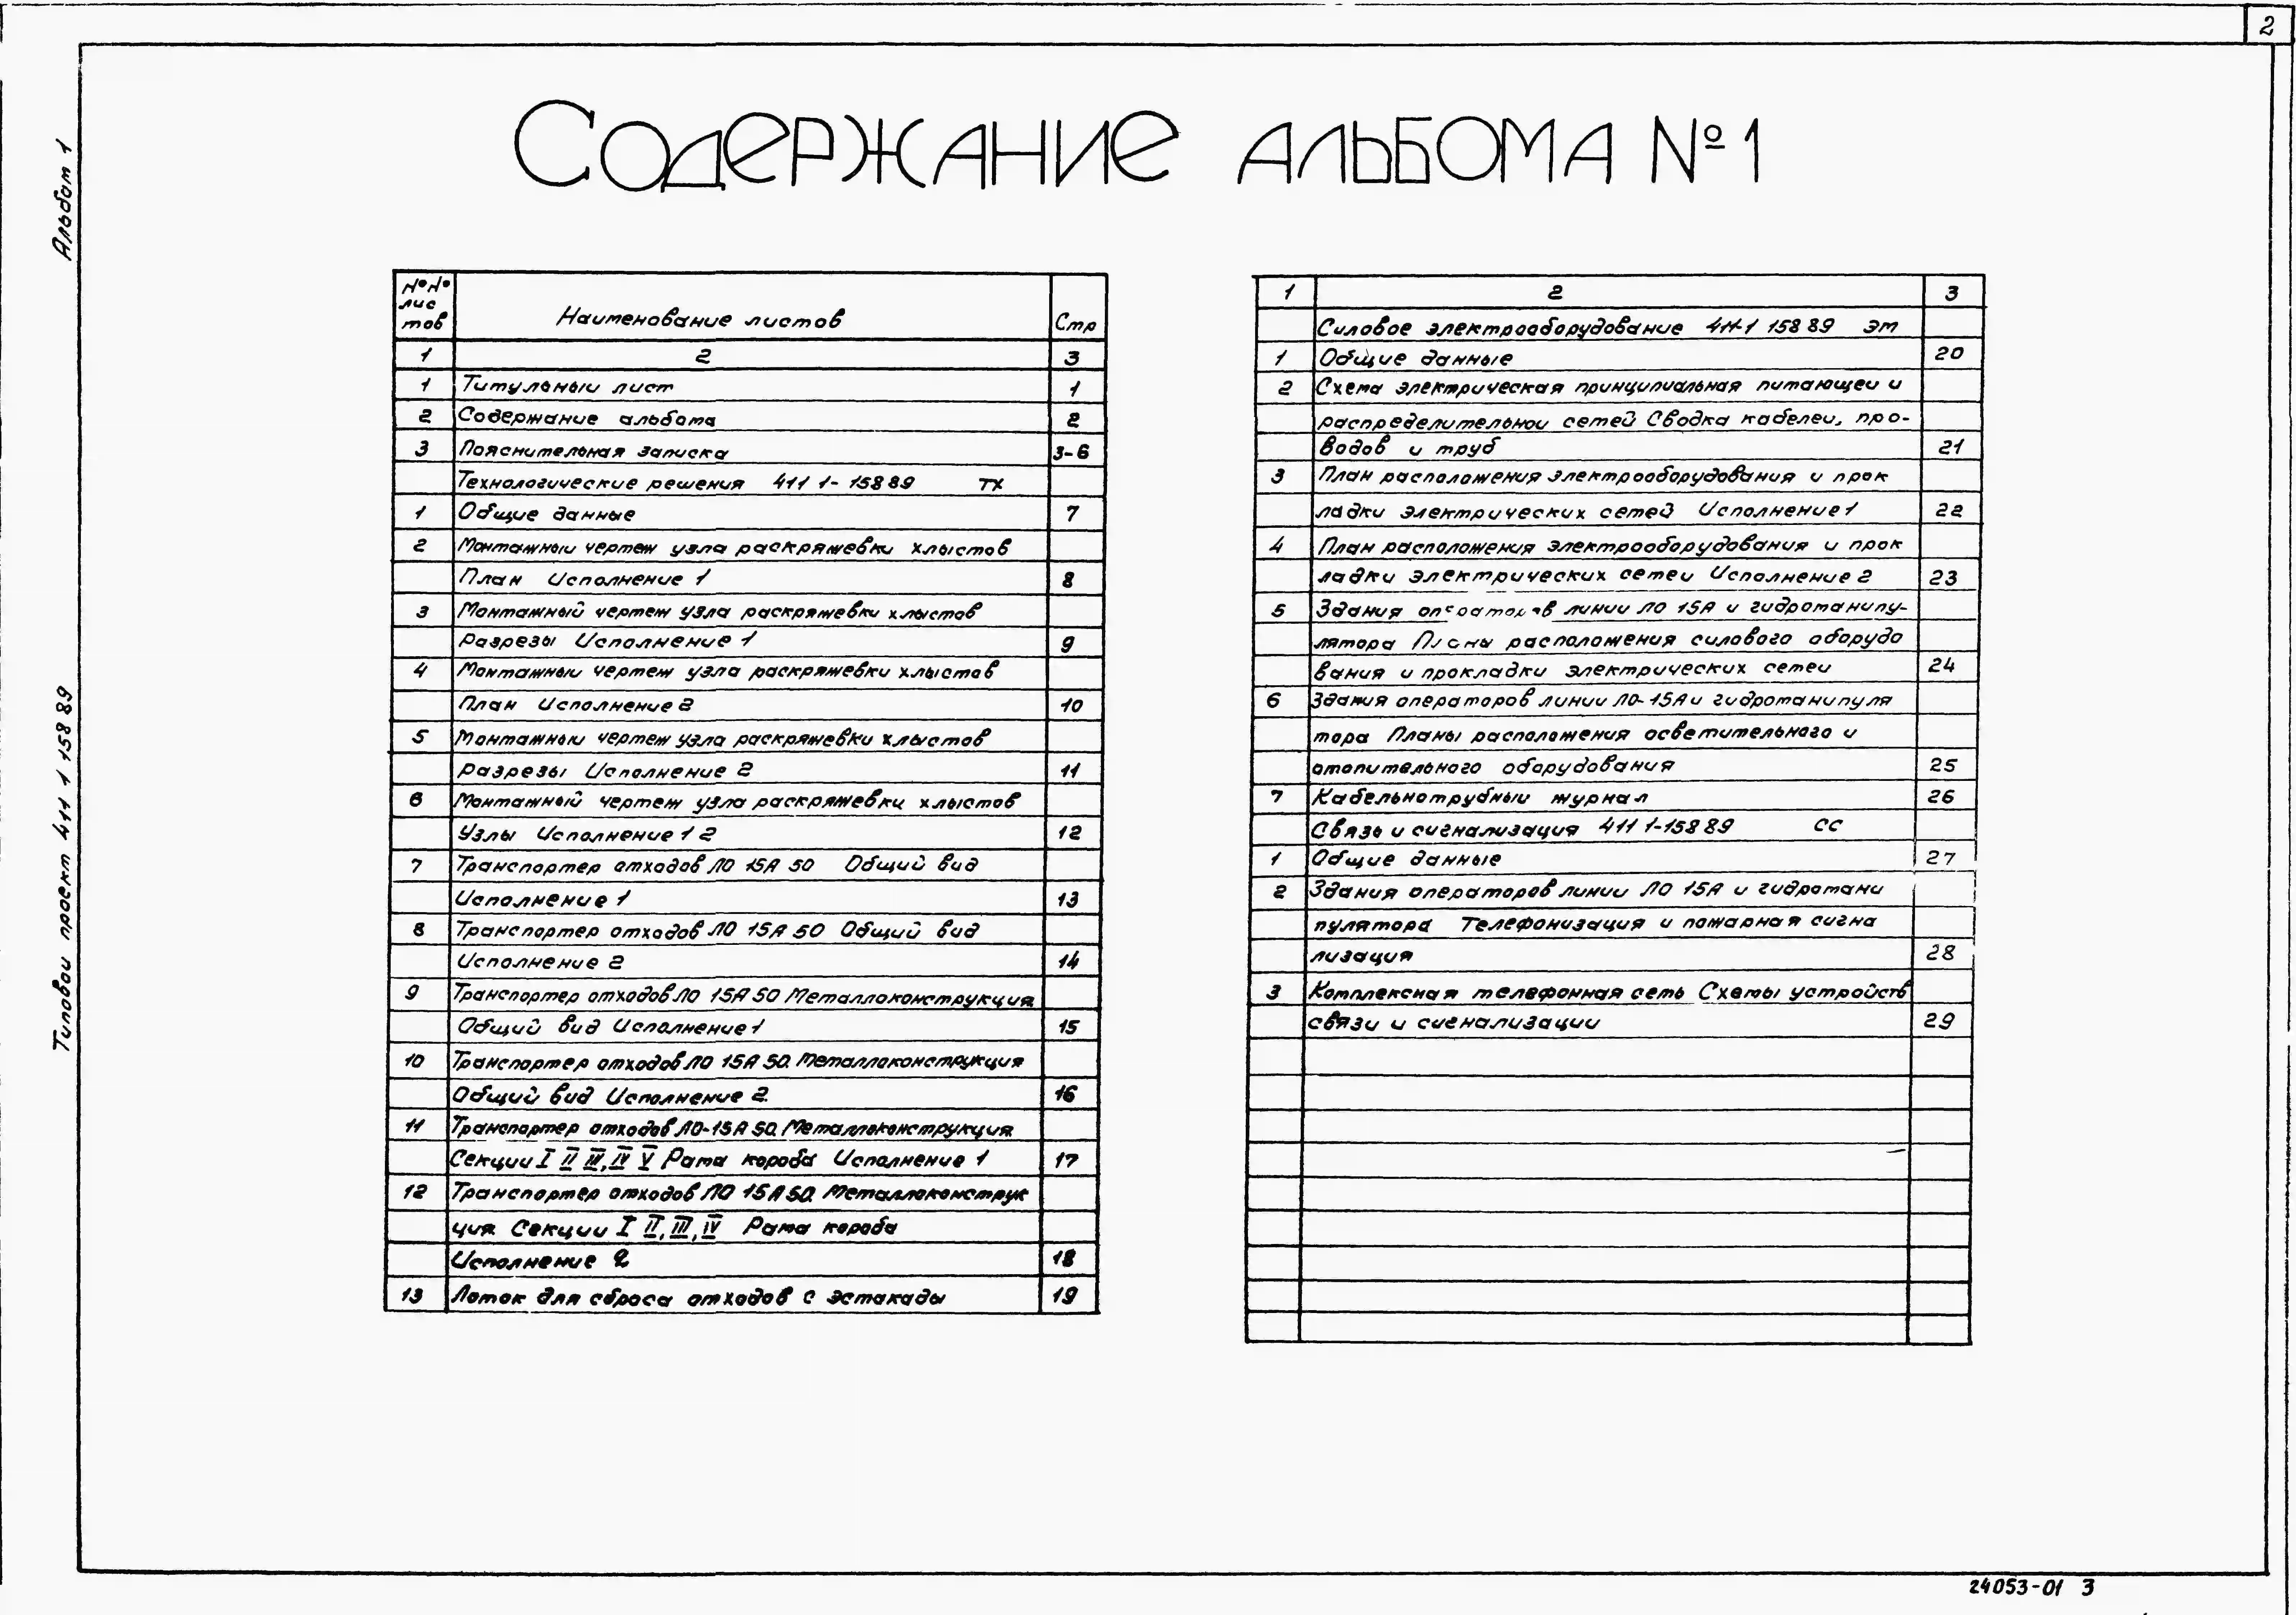 2
Содержание альбома №1
Альбом 1
Типовой проект 411 1 158 89
№№ лис тов Наименование листов Стр
1 2 3
1 Титульный лист 1
2 Содержание альбома 2
3 Пояснительная записка 3-6
Технологические решения 411 1-158 89 ТХ
1 Общие данные 7
2 Монтажный чертеж узла раскряжевки хлыстов
План Исполнение 1 8
3 Монтажный чертеж узла раскряжевки хлыстов
Разрезы Исполнение 1 9
4 Монтажный чертеж узла раскряжевки хлыстов
План Исполнение 2 10
5 Монтажный чертеж узла раскряжевки хлыстов
Разрезы Исполнение 2 11
6 Монтажный чертеж узла раскряжевки хлыстов
Узлы Исполнение 1 2 12
7 Транспортер отходов ЛО 15А 50 Общий вид
Исполнение 1 13
8 Транспортер отходов ЛО 15А 50 Общий вид
Исполнение 2 14
9 Транспортер отходов ЛО 15А 50 Металлоконструкция
Общий вид Исполнение 1 15
10 Транспортер отходов ЛО 15А 50. Металлоконструкция
Общий вид Исполнение 2. 16
11 Транспортер отходов ЛО-15А 50. Металлоконструкция
Секции I II III, IV V Рама короба Исполнение 1 17
12 Транспортер отходов ЛО 15А 50. Металлоконструк
ция. Секции I II, III, IV Рама короба
Исполнение 2 18
13 Лоток для сброса отходов с эстакады 19
1 2 3
Силовое электрооборудование 411-1 158 89 ЭМ
1 Общие данные 20
2 Схема электрическая принципиальная питающей и
распределительной сетей Сводка кабелей, про-
водов и труб 21
3 План расположения электрооборудования и прок
ладки электрических сетей Исполнение 1 22
4 План расположения электрооборудования и прок
ладки электрических сетей Исполнение 2 23
5 Здания операторов линии ЛО 15А и гидроманипу-
лятора Планы расположения силового оборудо
вания и прокладки электрических сетей 24
6 Здания операторов линии ЛО-15А и гидроманипуля
тора Планы расположения осветительного и
отопительного оборудования 25
7 Кабельнотрубный журнал 26
Связь и сигнализация 411 1-158 89 СС
1 Общие данные 27
2 Здания операторов линии ЛО 15А и гидромани
пулятора Телефонизация и пожарная сигна
лизация 28
3 Комплексная телефонная сеть Схемы устройств
связи и сигнализации 29
24053-01 3